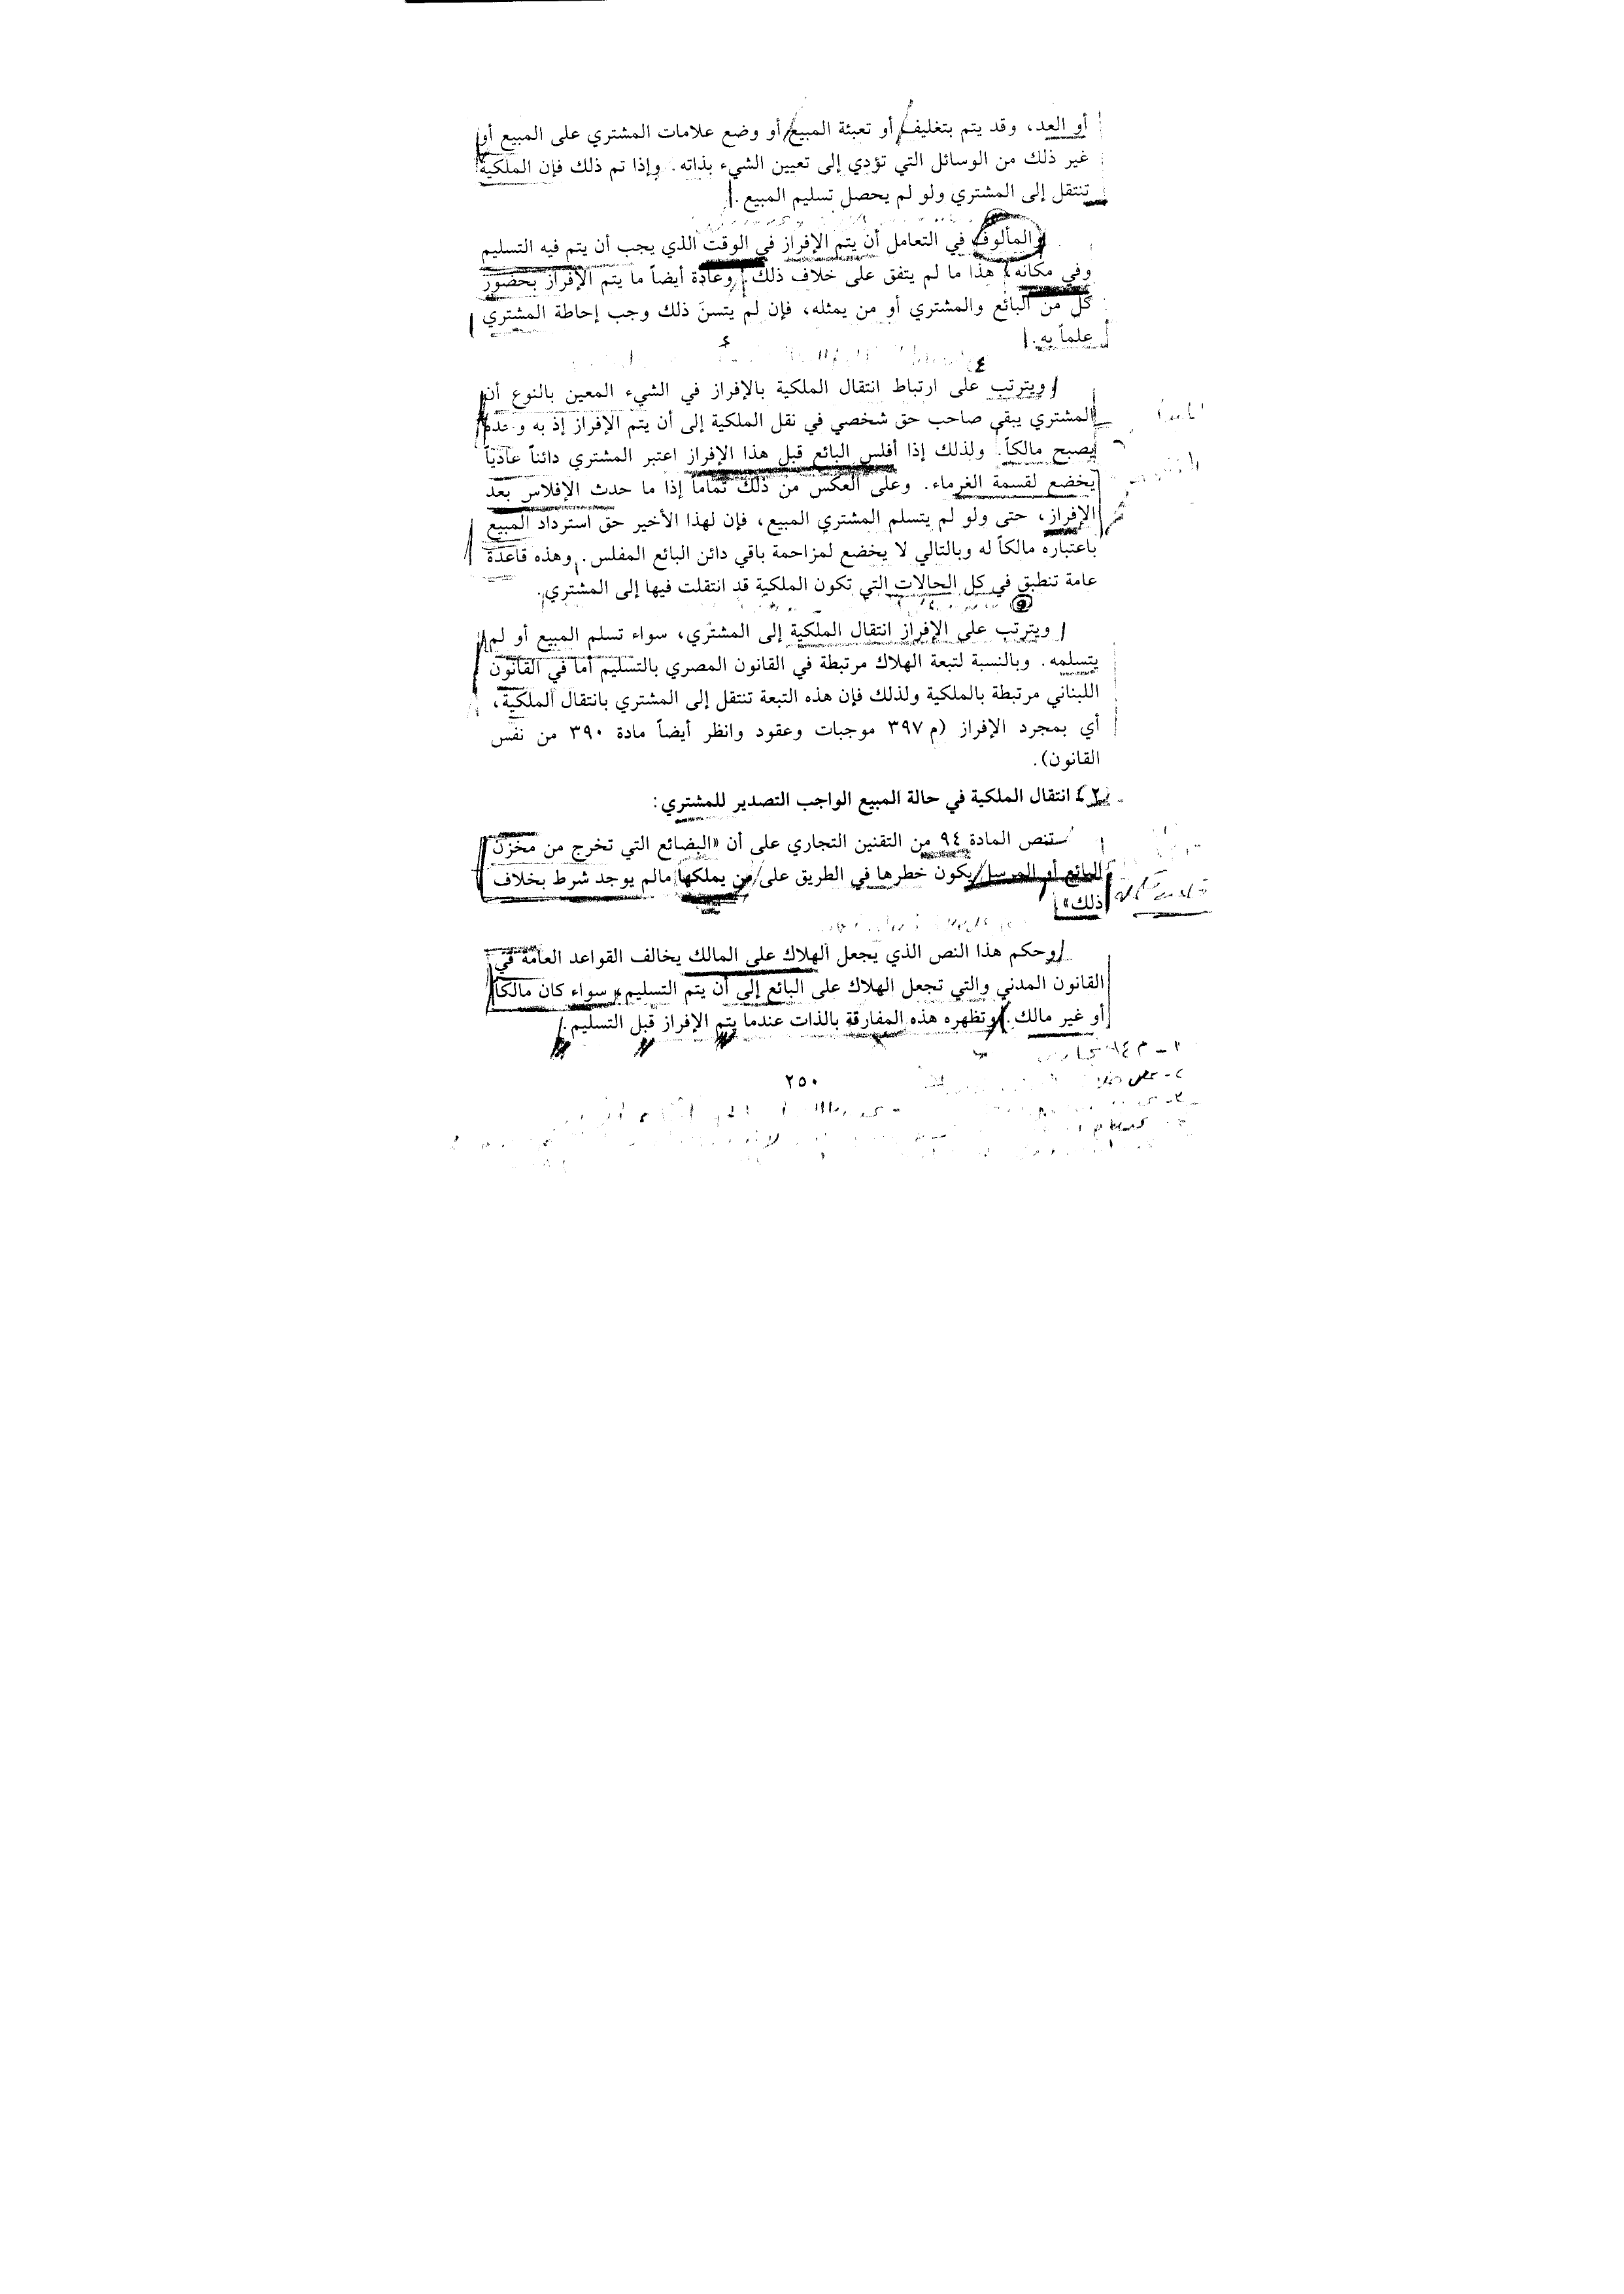 أو العد، وقد يتم بتغليف أو تعبئة المبيع أو وضع علامات المشتري على المبيع أو
غير ذلك من الوسائل التي تؤدي إلى تعيين الشيء بذاته. وإذا تم ذلك فإن الملكية
تنتقل إلى المشتري ولو لم يحصل تسليم المبيع.
والمألوف في التعامل أن يتم الإفراز في الوقت الذي يجب أن يتم فيه التسليم
وفي مكانه هذا ما لم يتفق على خلاف ذلك. وعادة أيضاً ما يتم الإفراز بحضور
كل من البائع والمشتري أو من يمثله، فإن لم يتسنَ ذلك وجب إحاطة المشتري
علماً به.
ويترتب على ارتباط انتقال الملكية بالإفراز في الشيء المعين بالنوع أن
المشتري يبقى صاحب حق شخصي في نقل الملكية إلى أن يتم الإفراز إذ به وحده
يصبح مالكاً. ولذلك إذا أفلس البائع قبل هذا الإفراز اعتبر المشتري دائناً عادياً
يخضع لقسمة الغرماء. وعلى العكس من ذلك تماماً إذا ما حدث الإفلاس بعد
الإفراز، حتى ولو لم يتسلم المشتري المبيع، فإن لهذا الأخير حق استرداد المبيع
باعتباره مالكاً له وبالتالي لا يخضع لمزاحمة باقي دائن البائع المفلس. وهذه قاعدة
عامة تنطبق في كل الحالات التي تكون الملكية قد انتقلت فيها إلى المشتري.
ويترتب على الإفراز انتقال الملكية إلى المشتري، سواء تسلم المبيع أو لم
يتسلمه. وبالنسبة لتبعة الهلاك مرتبطة في القانون المصري بالتسليم أما في القانون
اللبناني مرتبطة بالملكية ولذلك فإن هذه التبعة تنتقل إلى المشتري بانتقال الملكية،
أي بمجرد الإفراز (م ٣٩٧ موجبات وعقود وانظر أيضاً مادة ٣٩٠ من نفس
القانون).
(٢) انتقال الملكية في حالة المبيع الواجب التصدير للمشتري:
ستنص المادة ٩٤ من التقنين التجاري على أن «البضائع التي تخرج من مخزن
البائع أو المرسل يكون خطرها في الطريق على من يملكها مالم يوجد شرط بخلاف
ذلك»
وحكم هذا النص الذي يجعل الهلاك على المالك يخالف القواعد العامة في
القانون المدني والتي تجعل الهلاك على البائع إلى أن يتم التسليم، سواء كان مالكاً
أو غير مالك. وتظهره هذه المفارقة بالذات عندما يتم الإفراز قبل التسليم.
٢٥٠